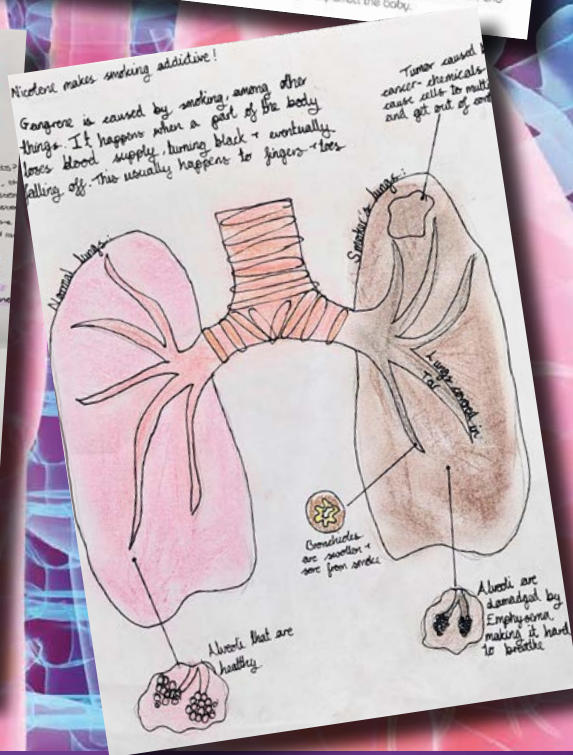 the baby.
Nicotene makes smoking addictive!
Gangrene is caused by smoking, among other
things. It happens when a part of the body
loses blood supply, turning black + eventually
falling off. This usually happens to fingers + toes
Tumor caused
cancer - chemicals
cause cells to
and get out of
Normal lungs:
Smoker's lungs:
Lungs coverd in
Tar
Bronchioles
are swollen +
sore from smoke
Alveoli that are
healthy
Alveoli are
damadged by
Emphysema
making it hard
to breathe